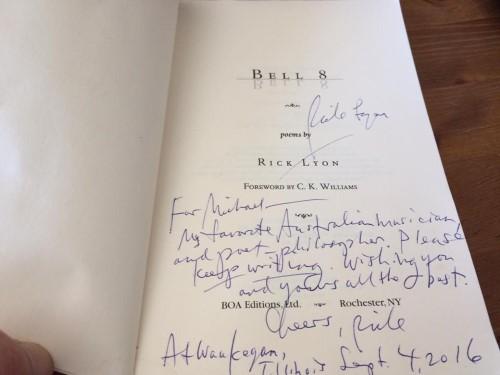 BELL 8
Rick Lyon
poems by
RICK LYON
FOREWORD BY C. K. WILLIAMS
For Michael—
My favorite Australian musician
and poet philosopher. Please
keep writing. Wishing you
and yours all the best.
BOA Editions, Ltd. Rochester, NY
Cheers, Rick
At Waukegan,
Illinois Sept. 4, 2016